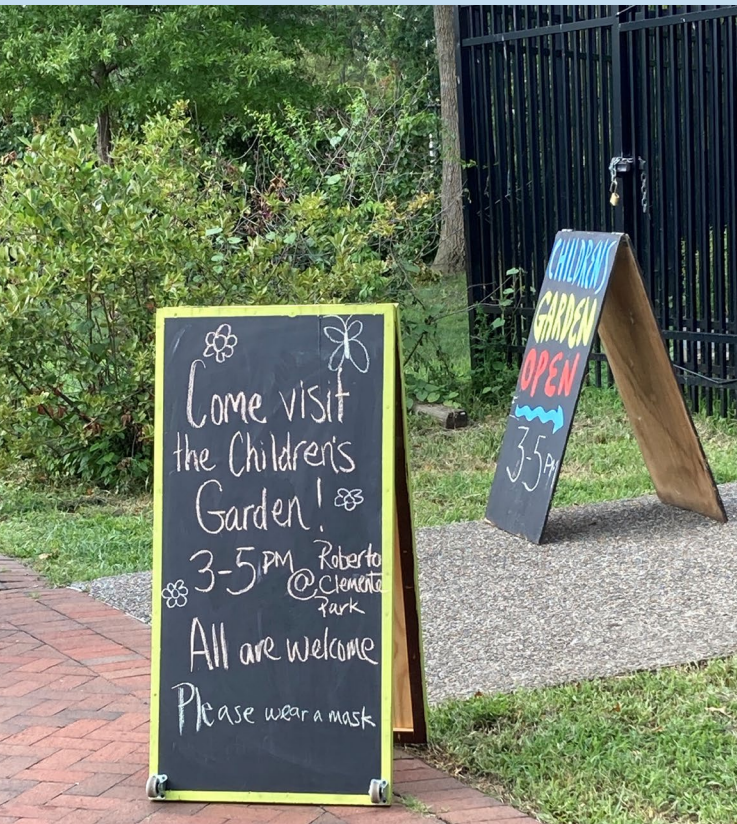 Come visit
the Children's
Garden!
3-5PM @ Roberto
Clemente
Park
All are welcome
Please wear a mask
CHILDREN'S
GARDEN
OPEN
3-5PM